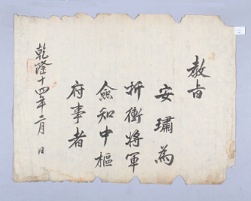 教旨
安璛為
折衝將軍
僉知中樞
府事者
乾隆十四年二月 日